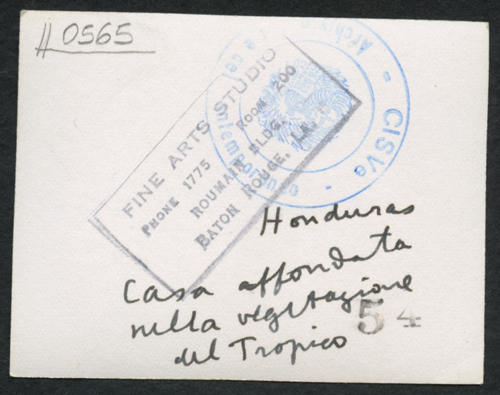 #0565
FINE ARTS STUDIO
PHONE 1775 ROOM 200
ROUMAIN BLDG.
BATON ROUGE, LA.
CISVe
Archivio
Contemporaneo
Honduras
Casa affondata
nella vegetazione
del Tropico
54